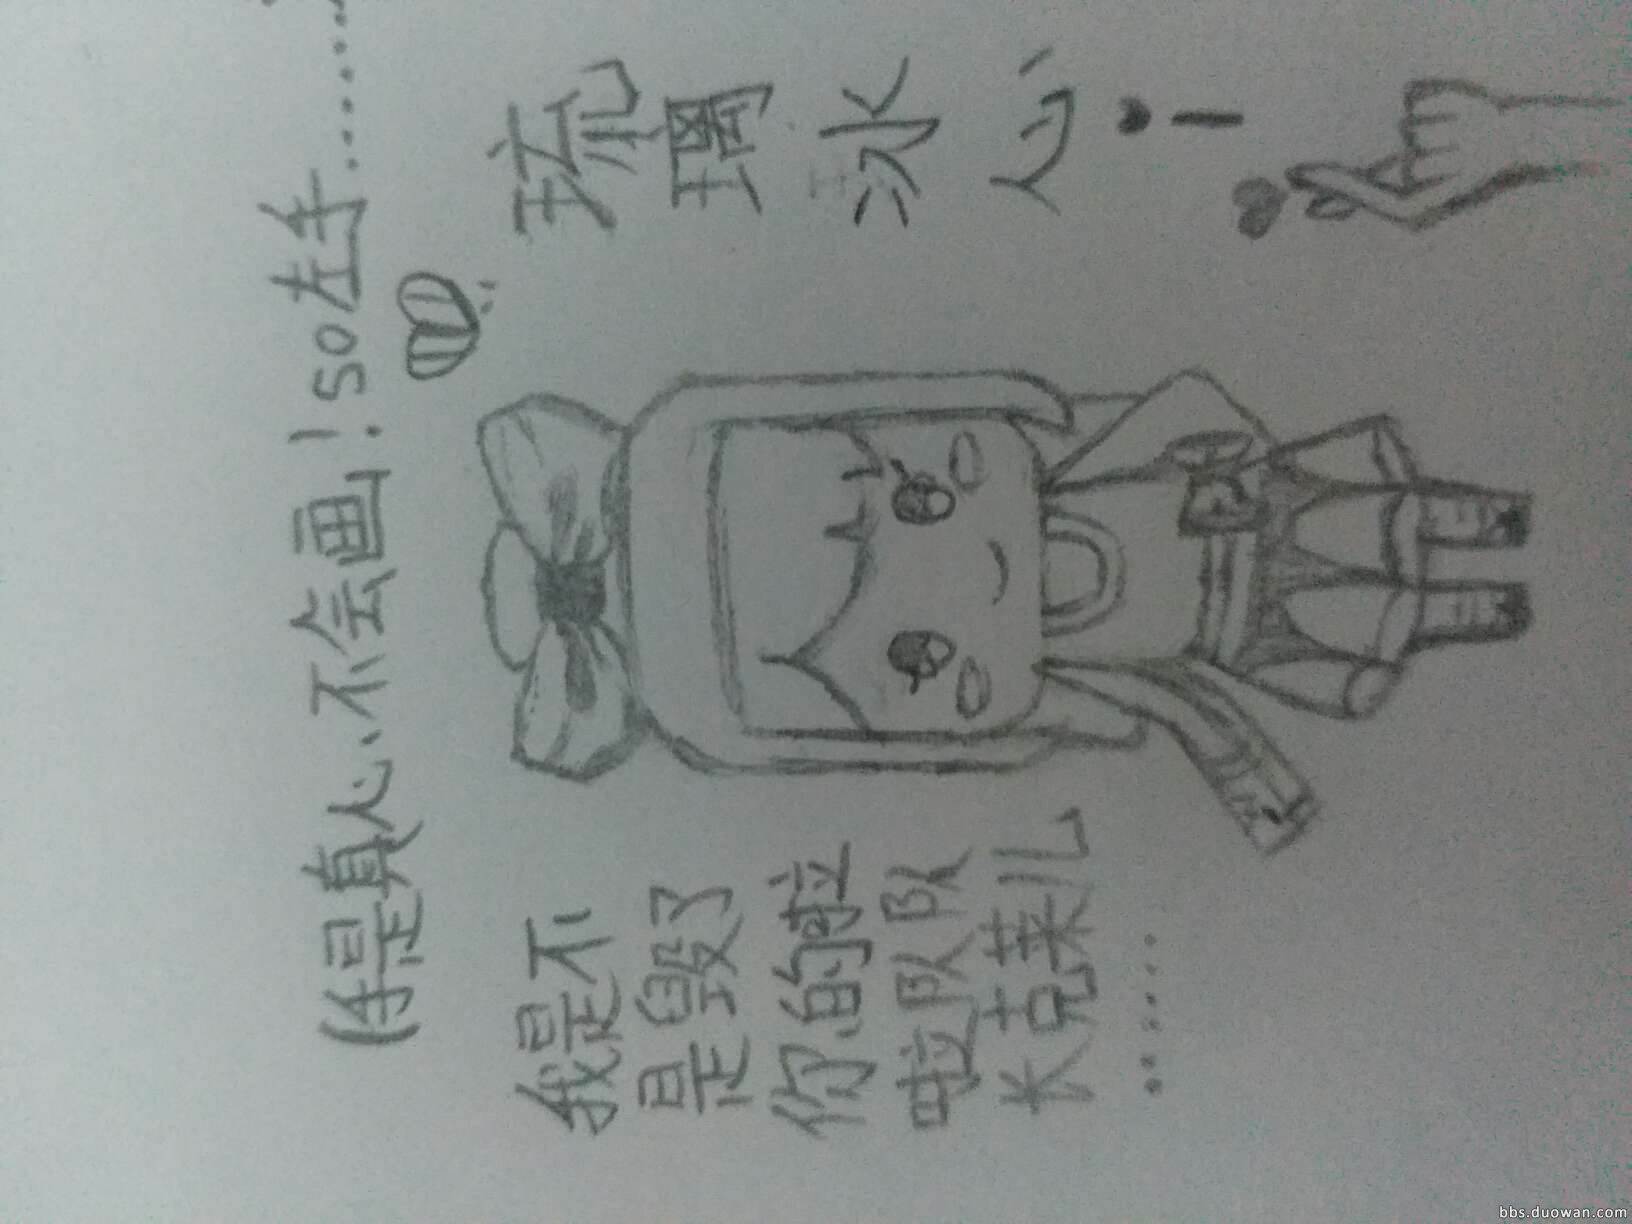 是真心、不会画！so左手……
我是不
是毁了
你的啦
啦队队
长克莱儿
……
琉
璃
冰
心
bbs.duowan.com